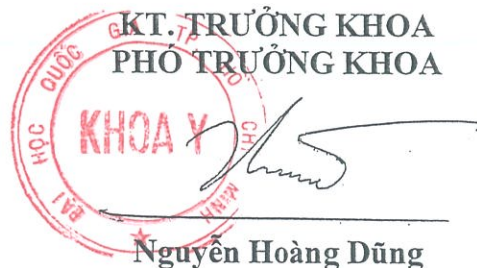 KT. TRƯỞNG KHOA
PHÓ TRƯỞNG KHOA
ĐẠI HỌC QUỐC G TP HỒ CHÍ MINH
KHOA Y
Nguyễn Hoàng Dũng